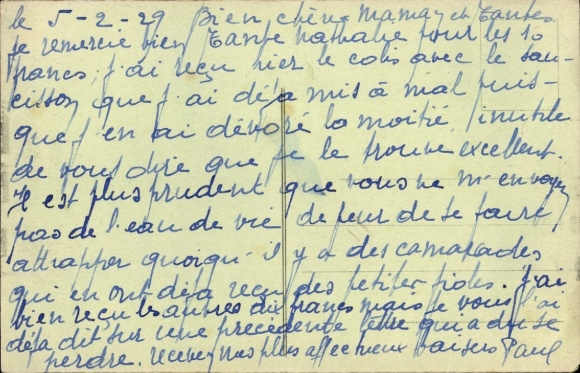 le 5-2-29 Bien chères Maman et Tantes
Je remercie bien Tante Nathalie pour les 10
francs, j'ai reçu hier le colis avec le sau-
cisson que j'ai déja mis à mal puis-
que j'en ai dévoré la moitié, inutile
de vous dire que je le trouve excellent.
Il est plus prudent que vous ne m'envoyez
pas de l'eau de vie de peur de se faire
attrapper quoiqu'il y a des camarades
qui en ont déja reçu des petites fioles. J'ai
bien reçu les autres dix francs mais je vous l'ai
déja dit sur une précédente lettre qui a du se
perdre. recevez mes plus affectueux baisers Paul